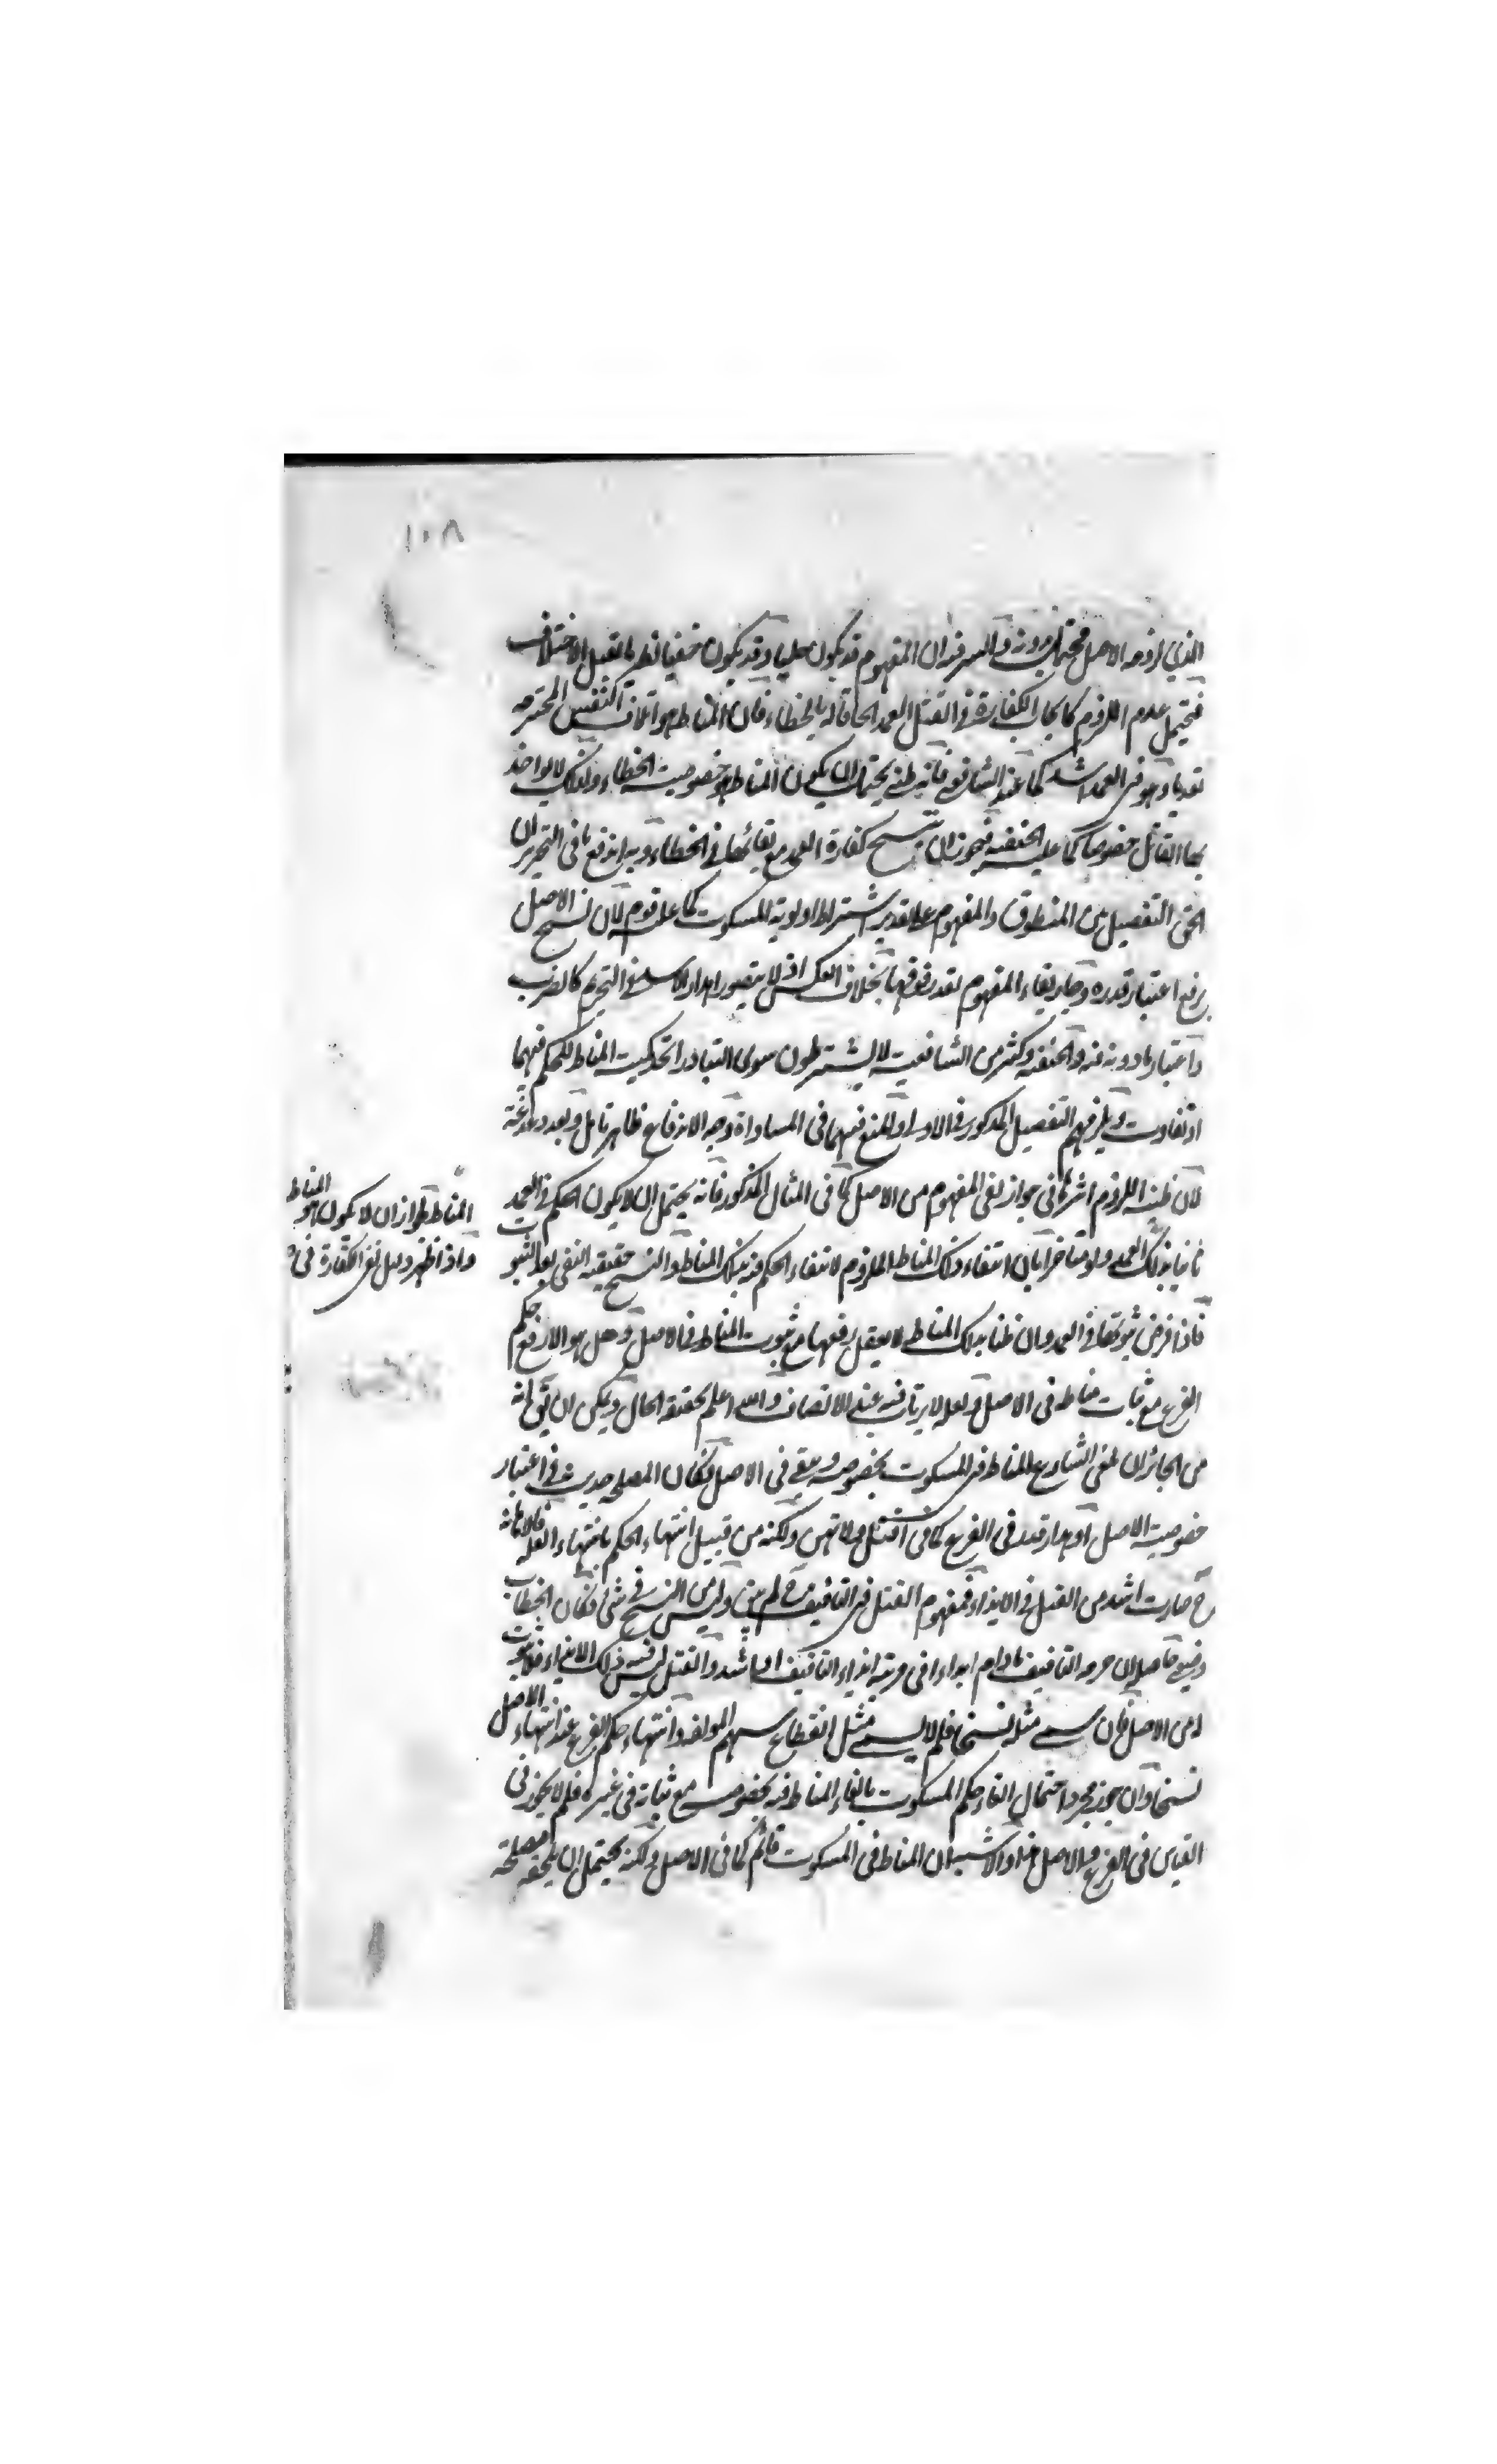 ١٠٨
الذي لزومه الاصل فيحتمل بدونه والسر فيه ان المفهوم قد يكون جليا وقد يكون خفيا نظريا يقبل الاختلاف
فيحتمل عدم اللزوم كايجاب الكفارة في القتل العمد الحاقا له بالخطاء فان المناط هو اتلاف النفس المحترمه
تعديا وهو في العمد اشد كما عند الشافعي فانه ظني يحتمل ان يكون المناط هو خصوصية الخطاء ولذلك لا يواخذ
بها القاتل خصوصا كما عليه الحنفيه فيجوز ان ينسخ كفارة العمد مع بقائها في الخطاء وبه اندفع ما في التحرير ان
الحق التفصيل بين المنطوق والمفهوم على تقدير اشتراط اولوية المسكوت كما عليه قوم لان نسخ الاصل
يرفع اعتبار قدره وجاز بقاء المفهوم بقدر فوقها بخلاف العكس اذ لا يتصور اهدار الاشد في التحريم كالضرب
واعتبار ما دونه فيه والحنفيه وكثير من الشافعية لا يشترطون سوى التبادر اتحد كمية المناط للحكم فيهما
او تفاوت ويلزمهم التفصيل المذكور في الاولى والمنع فيهما في المساواة وجه الاندفاع ظاهر تامل وبعد دغدغة
لان ظنية اللزوم اثرها في جواز نفي المفهوم من الاصل كما في المثال المذكور فانه يحتمل ان لا يكون الحكم في العمد
المناط
المناط لجواز ان لا يكون هو
واذا ظهر دليل نفي الكفارة في
ثابتا بذلك العمد ولو متاخرا بان انتفاء ذلك المناط الملزوم لانتفاء الحكم فيه بذلك المناط والنسخ حقيقيه النفي بعد الثبوت
فاذا فرض ثبوتها في العمد وان ظنا بذلك المناط لا يعقل رفعها مع ثبوت المناط في الاصل وهل هو الا رفع حكم
الفرع مع ثبات مناطه في الاصل ولعله لا يرتاب فيه عند الانصاف والله اعلم بحقيقة الحال ويمكن ان يق انه
من الجائز ان يلغي الشارع المناط في المسكوت بخصوصه ويبقى في الاصل فكان المصلحة حدثت في اعتبار
خصوصية الاصل او اهدار قيد في الفرع كما في القتل ولكنه من قبيل انتهاء الحكم بانتهاء العله
ح صارت اشد من القتل في الايذاء فمفهوم القتل في التافيف ح لم يبق وليس من النسخ في شئ فكان الخطاب
وضيع حاصله ان حرمه التافيف ما دام ايذاء في مرتبة ايذاء التافيف او اشد والقتل ليس فيه ذلك الايذاء فلا ثبوت
له من الاصل فان سمى مثله نسخا فلم لا يسمى مثل انقطاع سهم المولفه وانتهاء حكم الفرع عند انتهاء الاصل
نسخا وان جوز بمجرد احتمال الغاء حكم المسكوت بالغاء المناط فيه بخصوصه مع ثباته في غيره فلم لا يجوز في
القياس في الفرع والاصل هذا والاشبه ان المناط في المسكوت قائم كما في الاصل ولكنه يحتمل ان يلحقه مصلحة